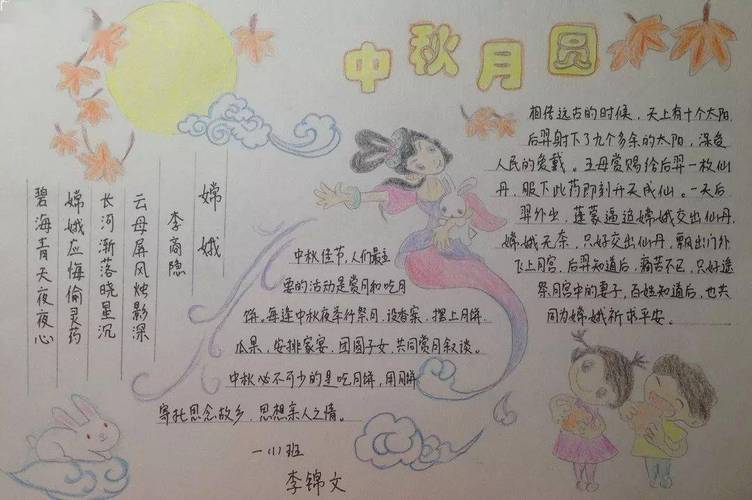 中秋月圆
嫦娥
李商隐
云母屏风烛影深
长河渐落晓星沉
嫦娥应悔偷灵药
碧海青天夜夜心
中秋佳节，人们最主
要的活动是赏月和吃月
饼。每逢中秋夜举行祭月，设香案，摆上月饼
瓜果，安排家宴，团圆子女，共同赏月叙谈。
中秋必不可少的是吃月饼，用月饼
寄托思念故乡，思想亲人之情。
一(1)班
李锦文
相传远古的时候，天上有十个太阳，
后羿射下了九个多余的太阳，深受
人民的爱戴。王母赏赐给后羿一枚仙
丹，服下此药即刻升天成仙。一天后
羿外出，蓬蒙逼迫嫦娥交出仙丹，
嫦娥无奈，只好交出仙丹，飘出门外
飞上月宫，后羿知道后，痛苦不已，只好遥
祭月宫中的妻子，百姓知道后，也共
同为嫦娥祈求平安。